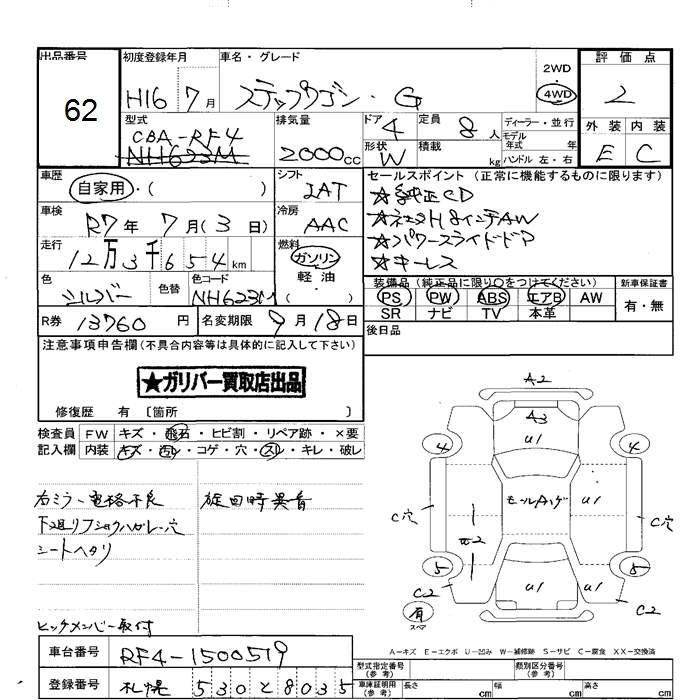 出品番号 初度登録年月 車名・グレード 評価点
62
H16 7月 ステップワゴン・G 2WD 4WD 2
型式 排気量 ドア 4 定員 8人 ディーラー・並行 外装 内装
CBA-RF4 モデル年式 年
NH623M 2000cc 形状 W 積載 kg ハンドル 左・右 E C
車歴 シフト セールスポイント (正常に機能するものに限ります)
自家用・( ) IAT ★純正CD
車検 R7年7月(3日) 冷房 AAC
走行 12万3千654km 燃料 ガソリン ★パワースライドドア
軽・油 ★キーレス
色 シルバー 色替 色コード NH623M ( ) 装備品 (純正品に限り○をつけてください) 新車保証書
PS PW ABS エアB AW 有・無
R券 13760円 名変期限 9月18日 SR ナビ TV 本革
後日品
注意事項申告欄 (不具合内容等は具体的に記入して下さい)
★ガリバー買取店出品
修復歴 有 〔箇所 〕
検査員 FW キズ・飛石・ヒビ割・リペア跡・×要
記入欄 内装 キズ・汚レ・コゲ・穴・スレ・キレ・破レ
A2
A3
U1
4 4
モールハゲ U1
C穴 C穴
E2
5 5
U1 U1
C2 C2
有 スペア
右ミラー電格不良 旋回時異音
下廻りフショクハガレ・穴
シートヘタリ
ヒッチメンバー取付
A=キズ E=エクボ U=凹み W=補修跡 S=サビ C=腐食 XX=交換済
車台番号 RF4-1500519 型式指定番号 (参考) 類別区分番号 (参考)
登録番号 札幌 530 と 8035 車庫証明用 (参考) 長さ cm 幅 cm 高さ cm